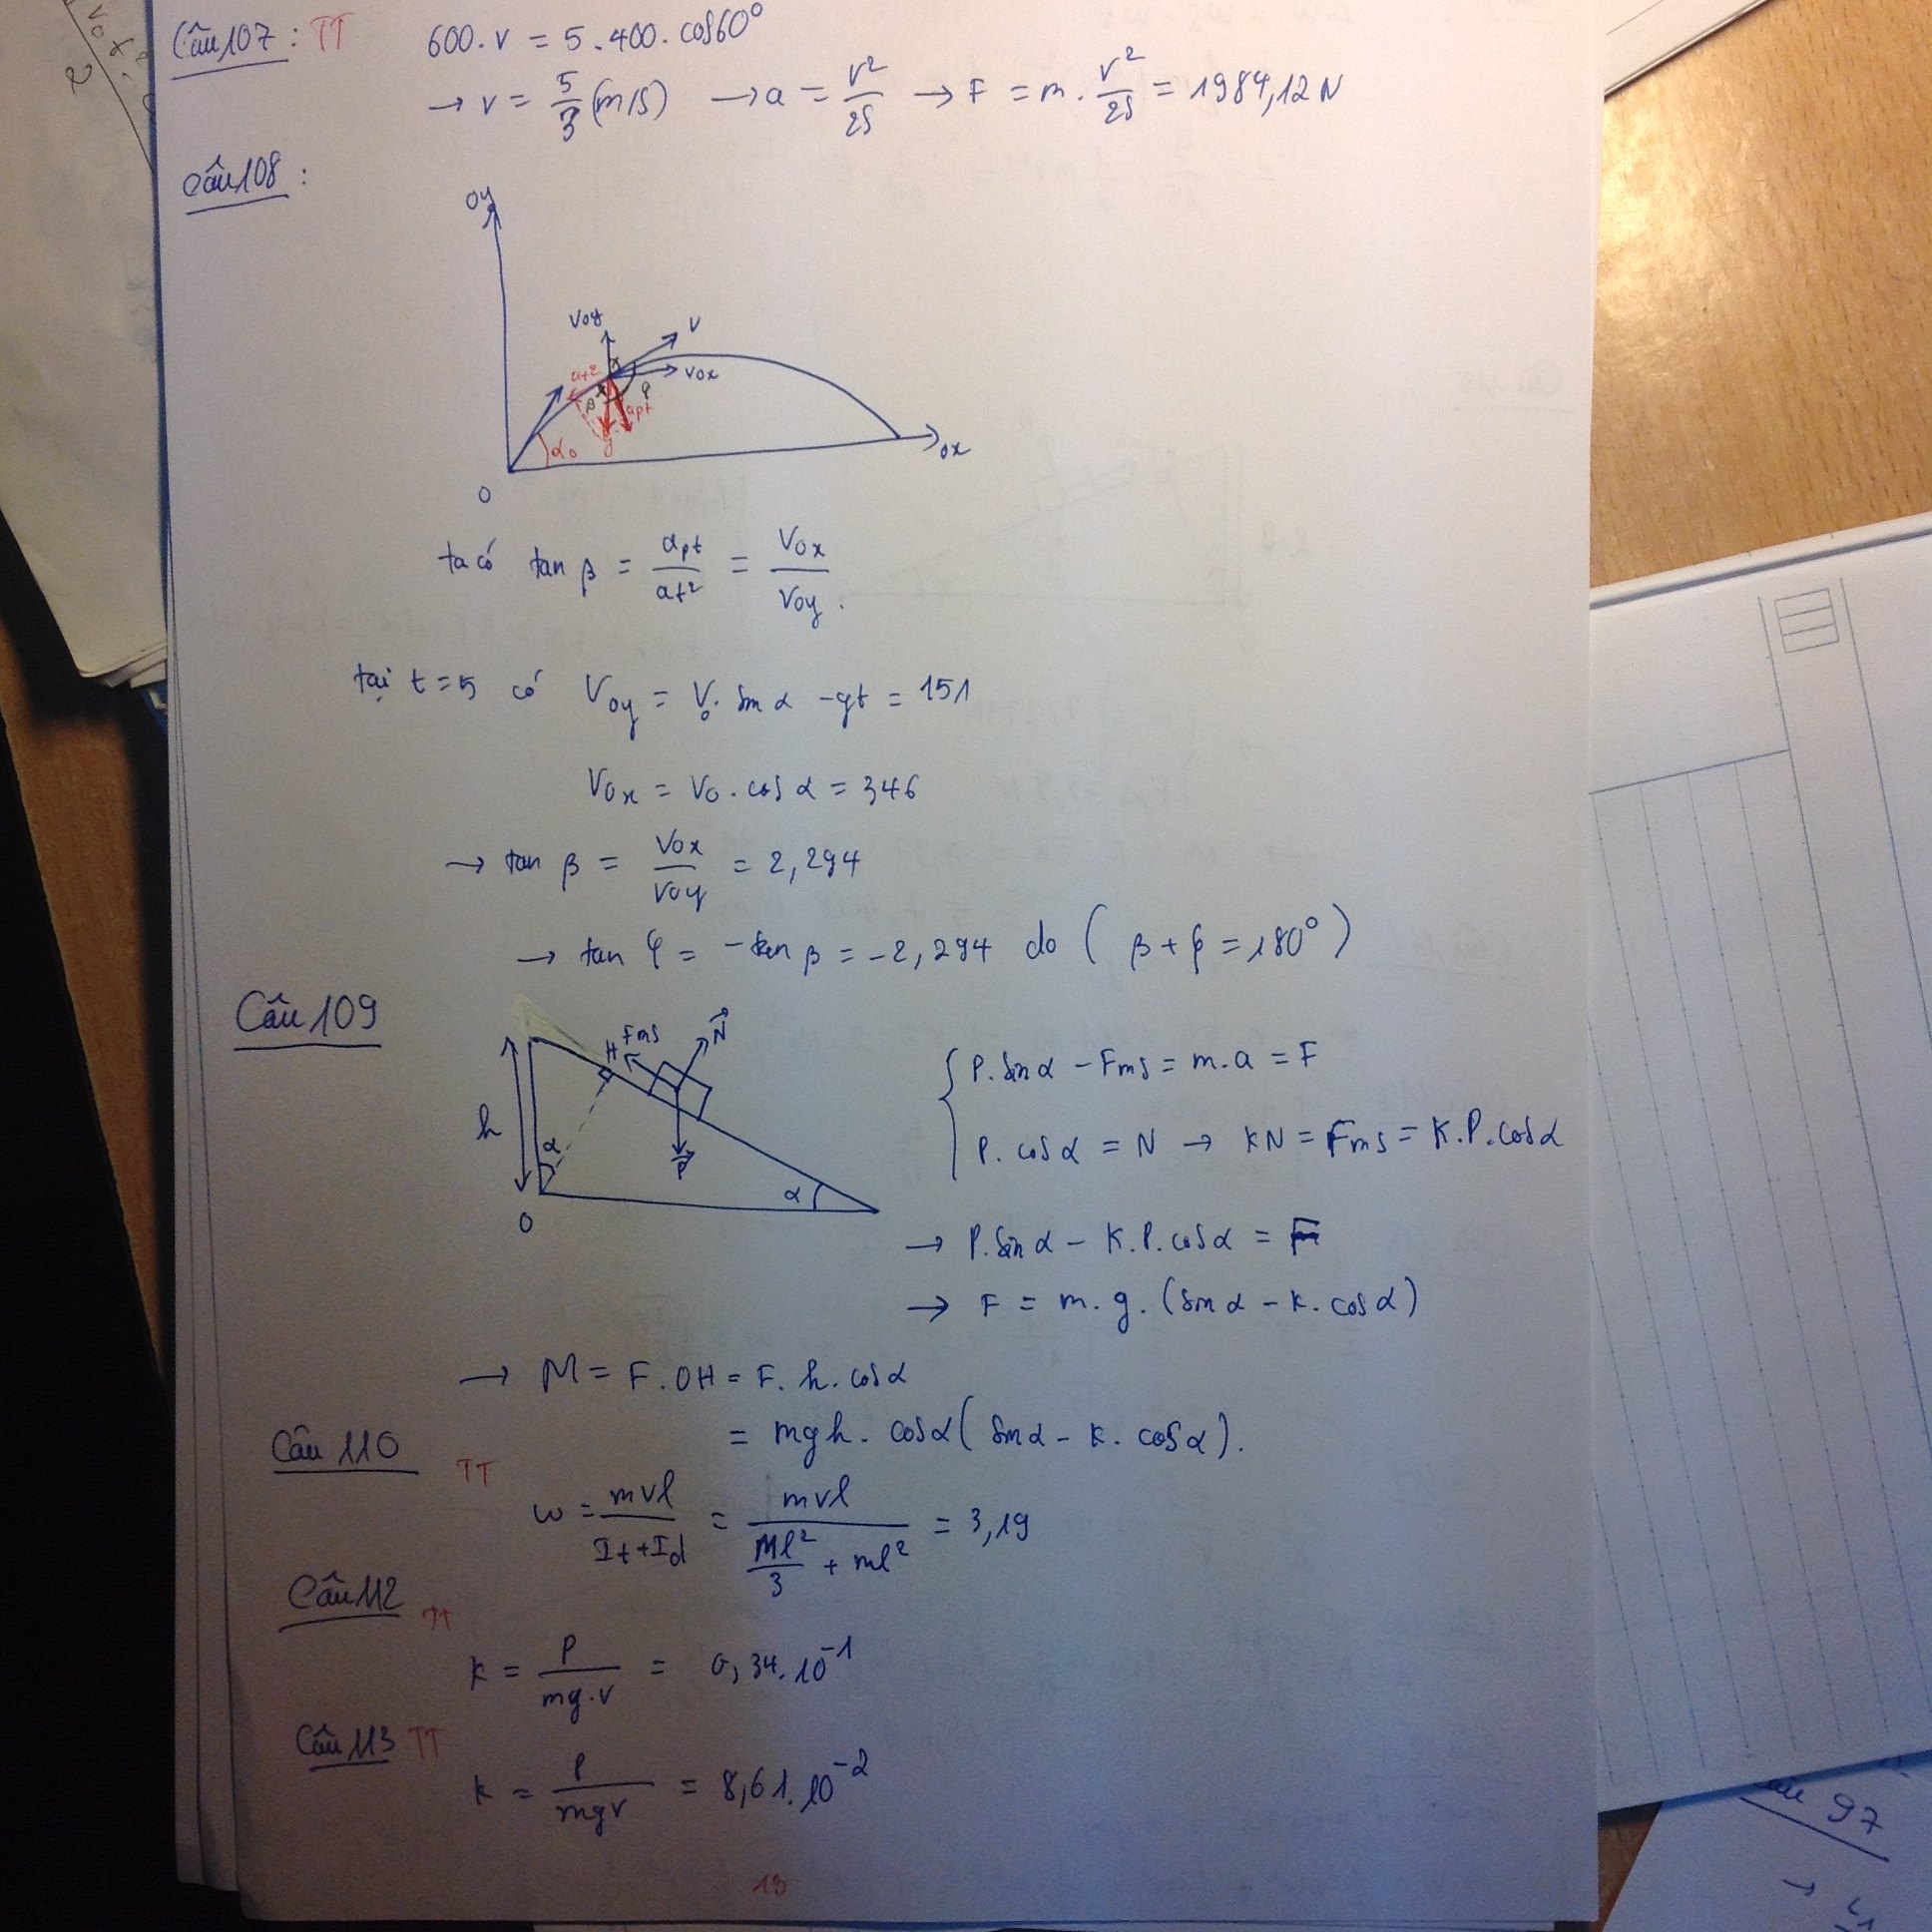 Câu 107 : TT 600.v = 5.400.cos60°
→ v = 5/3 (m/s) → a = v²/2S → F = m. v²/2S = 1984,12 N
Câu 108 :
Oy
Voy
V
Vox
at²
β
φ
apt
g
α₀
Ox
O
ta có tan β = apt/at² = Vox/Voy.
tại t=5 có Voy = V₀. sin α - gt = 151
Vox = V₀. cos α = 346
→ tan β = Vox/Voy = 2,294
→ tan φ = -tan β = -2,294 do ( β + φ = 180° )
Câu 109
H Fms N⃗
h
α
P⃗
α
O
P.sin α - Fms = m.a = F
P. cos α = N → kN = Fms = K.P.cos α
→ P.sin α - K.P.cos α = F
→ F = m.g.(sin α - k.cos α)
→ M = F.OH = F. h. cos α
= mgh. cos α ( sin α - k. cos α ).
Câu 110 TT
ω = mvl/(It+Id) = mvl/(Ml²/3 + ml²) = 3,19
Câu 112 TT
k = P/mg.v = 0,34.10⁻¹
Câu 113 TT
k = P/mgv = 8,61.10⁻²
13
97